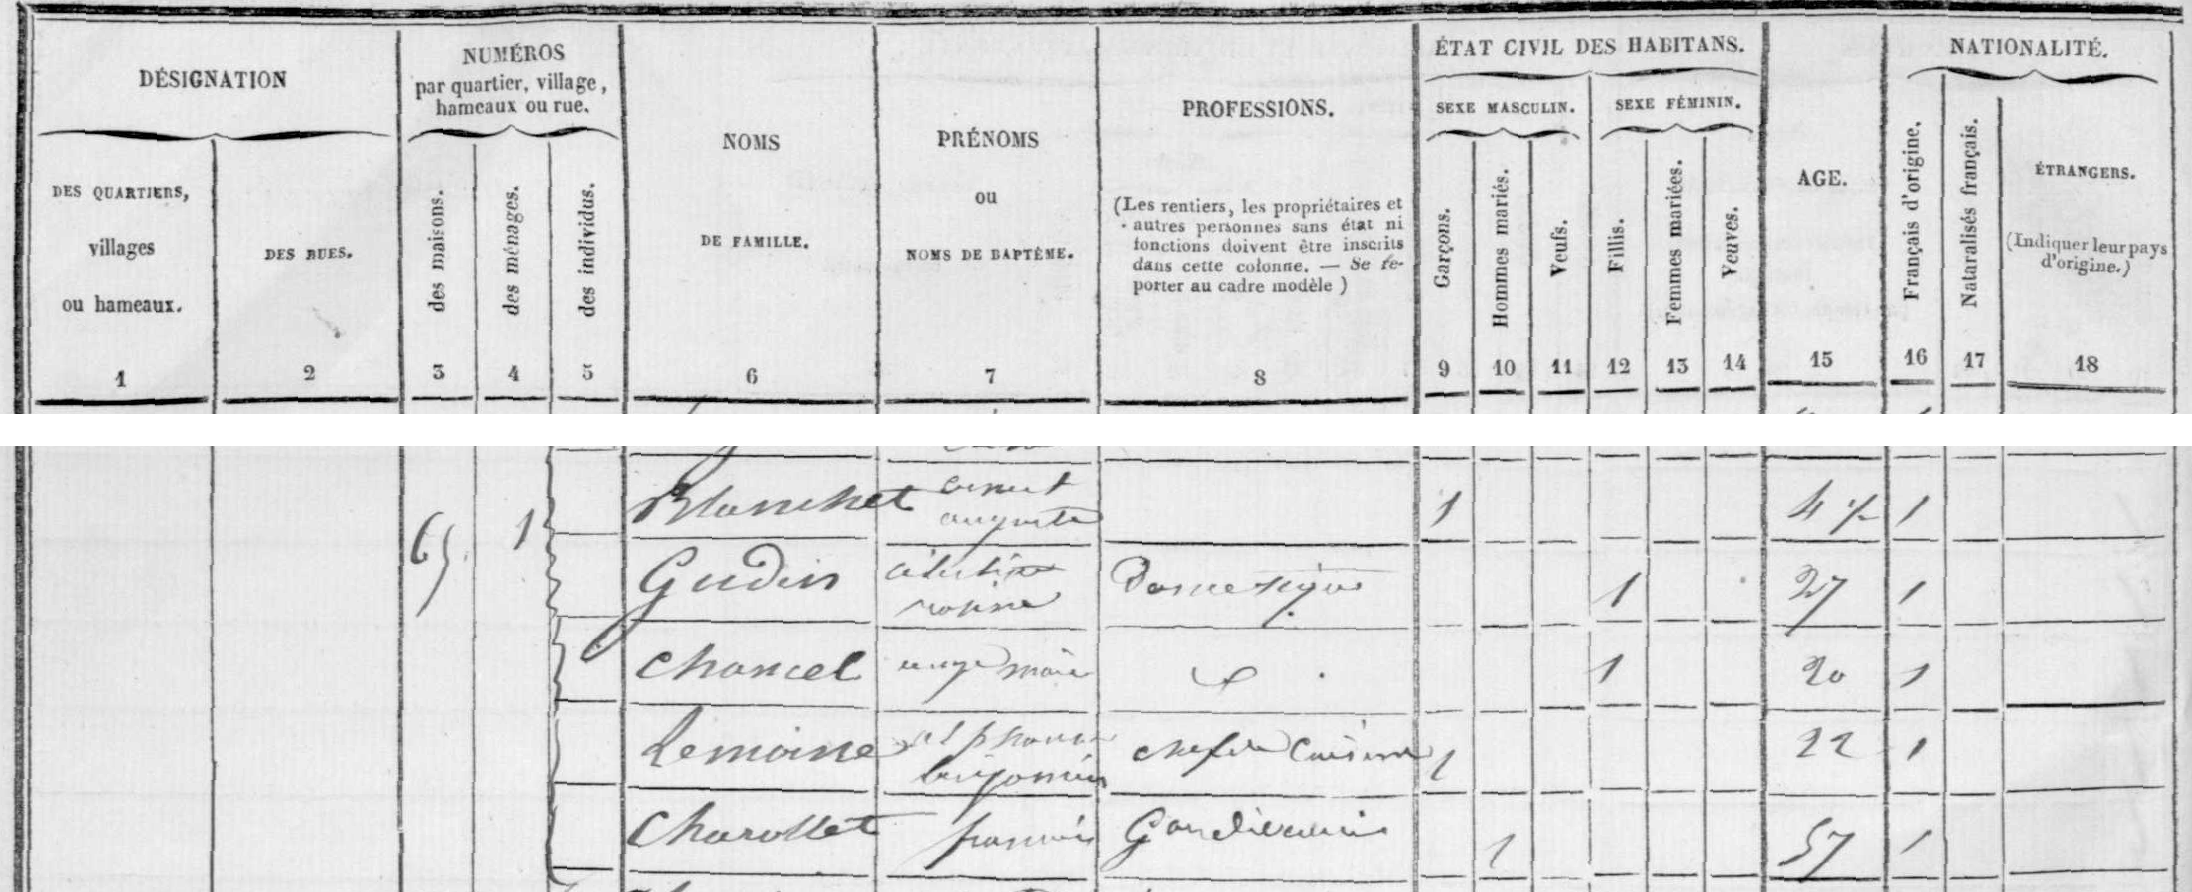 DÉSIGNATION
DES QUARTIERS,
villages
ou hameaux.
1
DES RUES.
2
NUMÉROS
par quartier, village,
hameaux ou rue.
des maisons.
3
des ménages.
4
des individus.
5
NOMS
DE FAMILLE.
6
PRÉNOMS
ou
NOMS DE BAPTÊME.
7
PROFESSIONS.
(Les rentiers, les propriétaires et
autres personnes sans état ni
fonctions doivent être inscrits
dans cette colonne. — Se re-
porter au cadre modèle )
8
ÉTAT CIVIL DES HABITANS.
SEXE MASCULIN.
Garçons.
9
Hommes mariés.
10
Veufs.
11
SEXE FÉMININ.
Fillis.
12
Femmes mariées.
13
Veuves.
14
AGE.
15
NATIONALITÉ.
Français d'origine.
16
Nataralisés français.
17
ÉTRANGERS.
(Indiquer leur pays
d'origine.)
18
65 1
Blanchet
auguste
1 47 1
Gudin
Domestique
1 27 1
Chancel marie
1 20 1
Lemoine alphonse
benjamin
chef de Cuisine 1 22 1
Charollet francois
1 57 1